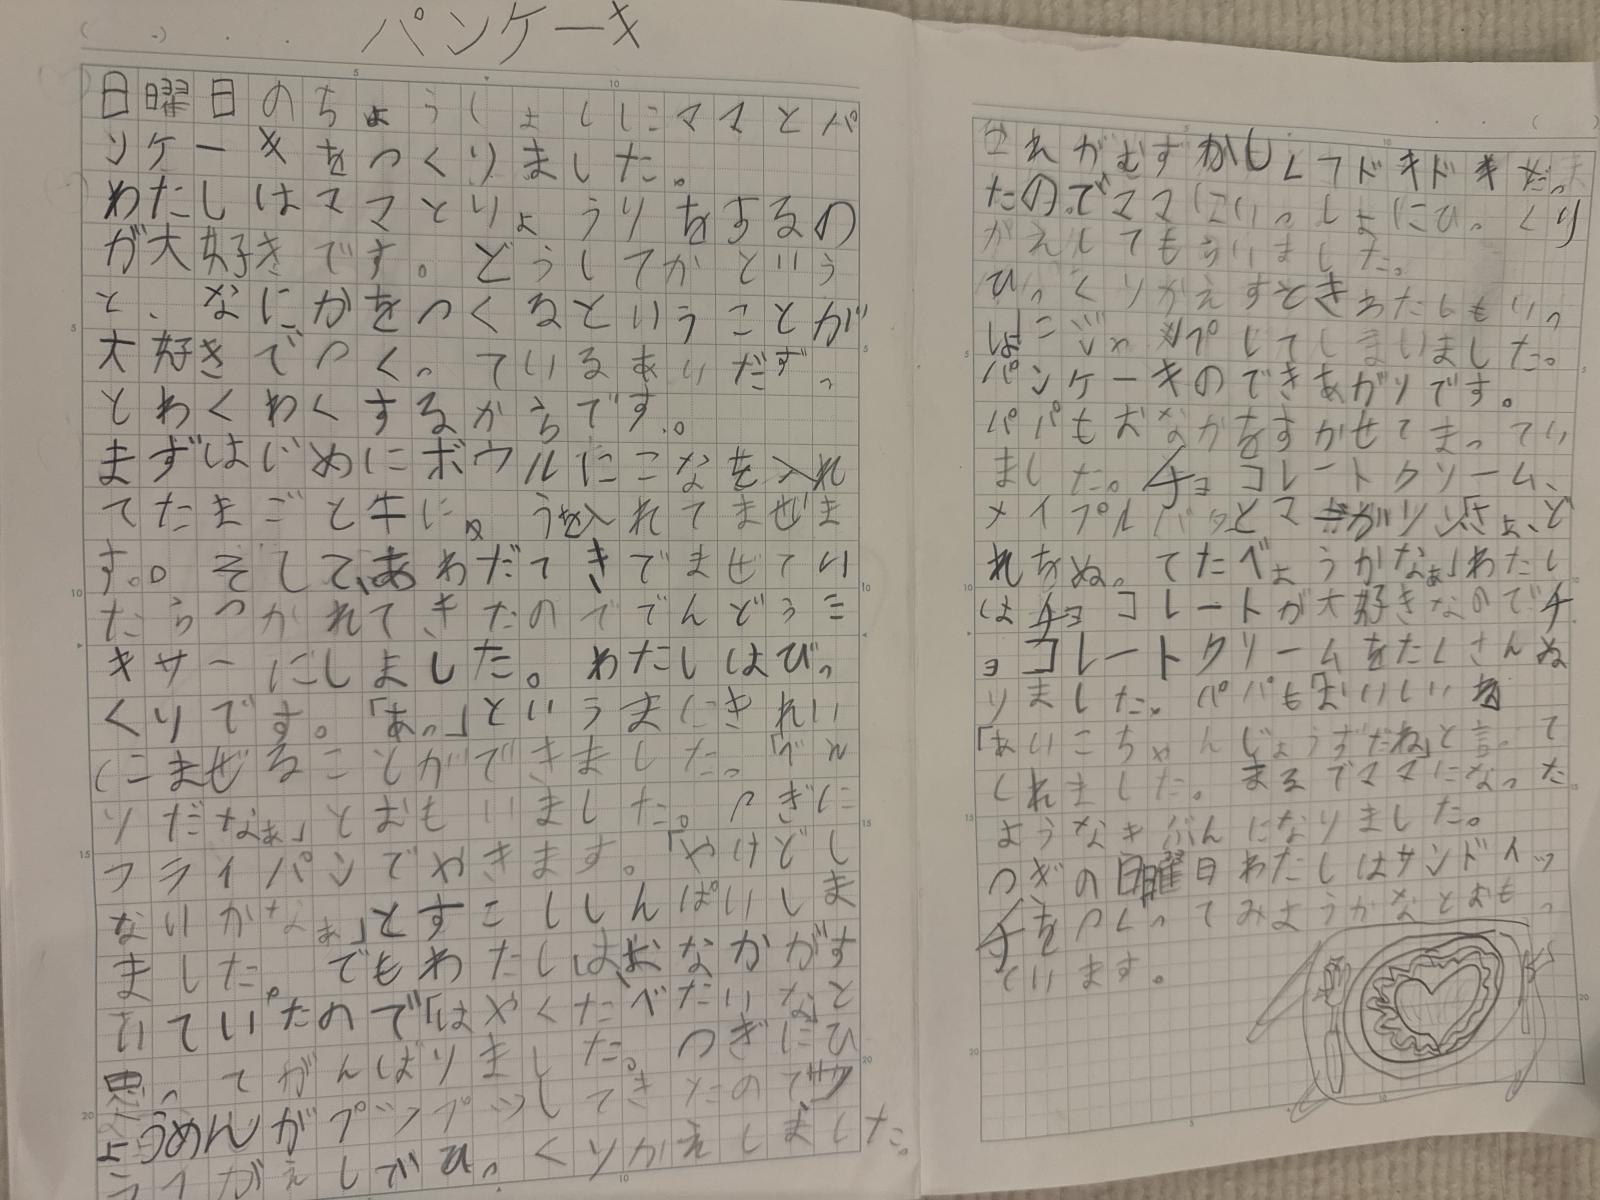 パンケーキ
日曜日のちょうしょしにママとパ
ンケーキをつくりました。
わたしはママとりょうりをするの
が大好きです。どうしてかという
と、なにかをつくるということが
大好きでつくっているあいだずっ
とわくわくするからです。
まずはじめにボウルにこなを入れ
てたまごと牛にゅうを入れてまぜま
す。そして、あわだてきでまぜてい
たらつかれてきたのででんどうミ
キサーにしました。わたしはびっ
くりです。「あっ」というまにきれい
にまぜることができました。「べん
りだなぁ」とおもいました。つぎに
フライパンでやきます。「やけどし
ないかなぁ」とすこししんぱいしま
ました。でもわたしはおなかがす
いていたので「はやくたべたいな」と
思ってがんばりました。つぎにひ
ょうめんがプツプツしてきたのでフ
ライがえしでひっくりかえしました。
それがむすかしくてドキドキだっ
たのでママにいっしょにひっくり
がえしてもらいました。
ひっくりかえすときわたしもいっ
しょにジャンプしてしまいました。
パンケーキのできあがりです。
パパもおなかをすかせてまってい
ました。チョコレートクリーム、
メイプルバタとマーガリン「さぁ、ど
れをぬってたべようかなぁ」わたし
はチョコレートが大好きなのでチ
ョコレートクリームをたくさんぬ
りました。パパも「おいしいね
「あいこちゃんじょうずだね」と言って
くれました。まるでママになった
ようなきぶんになりました。
つぎの日曜日わたしはサンドイッ
チをつくってみようかなとおもっ
ています。